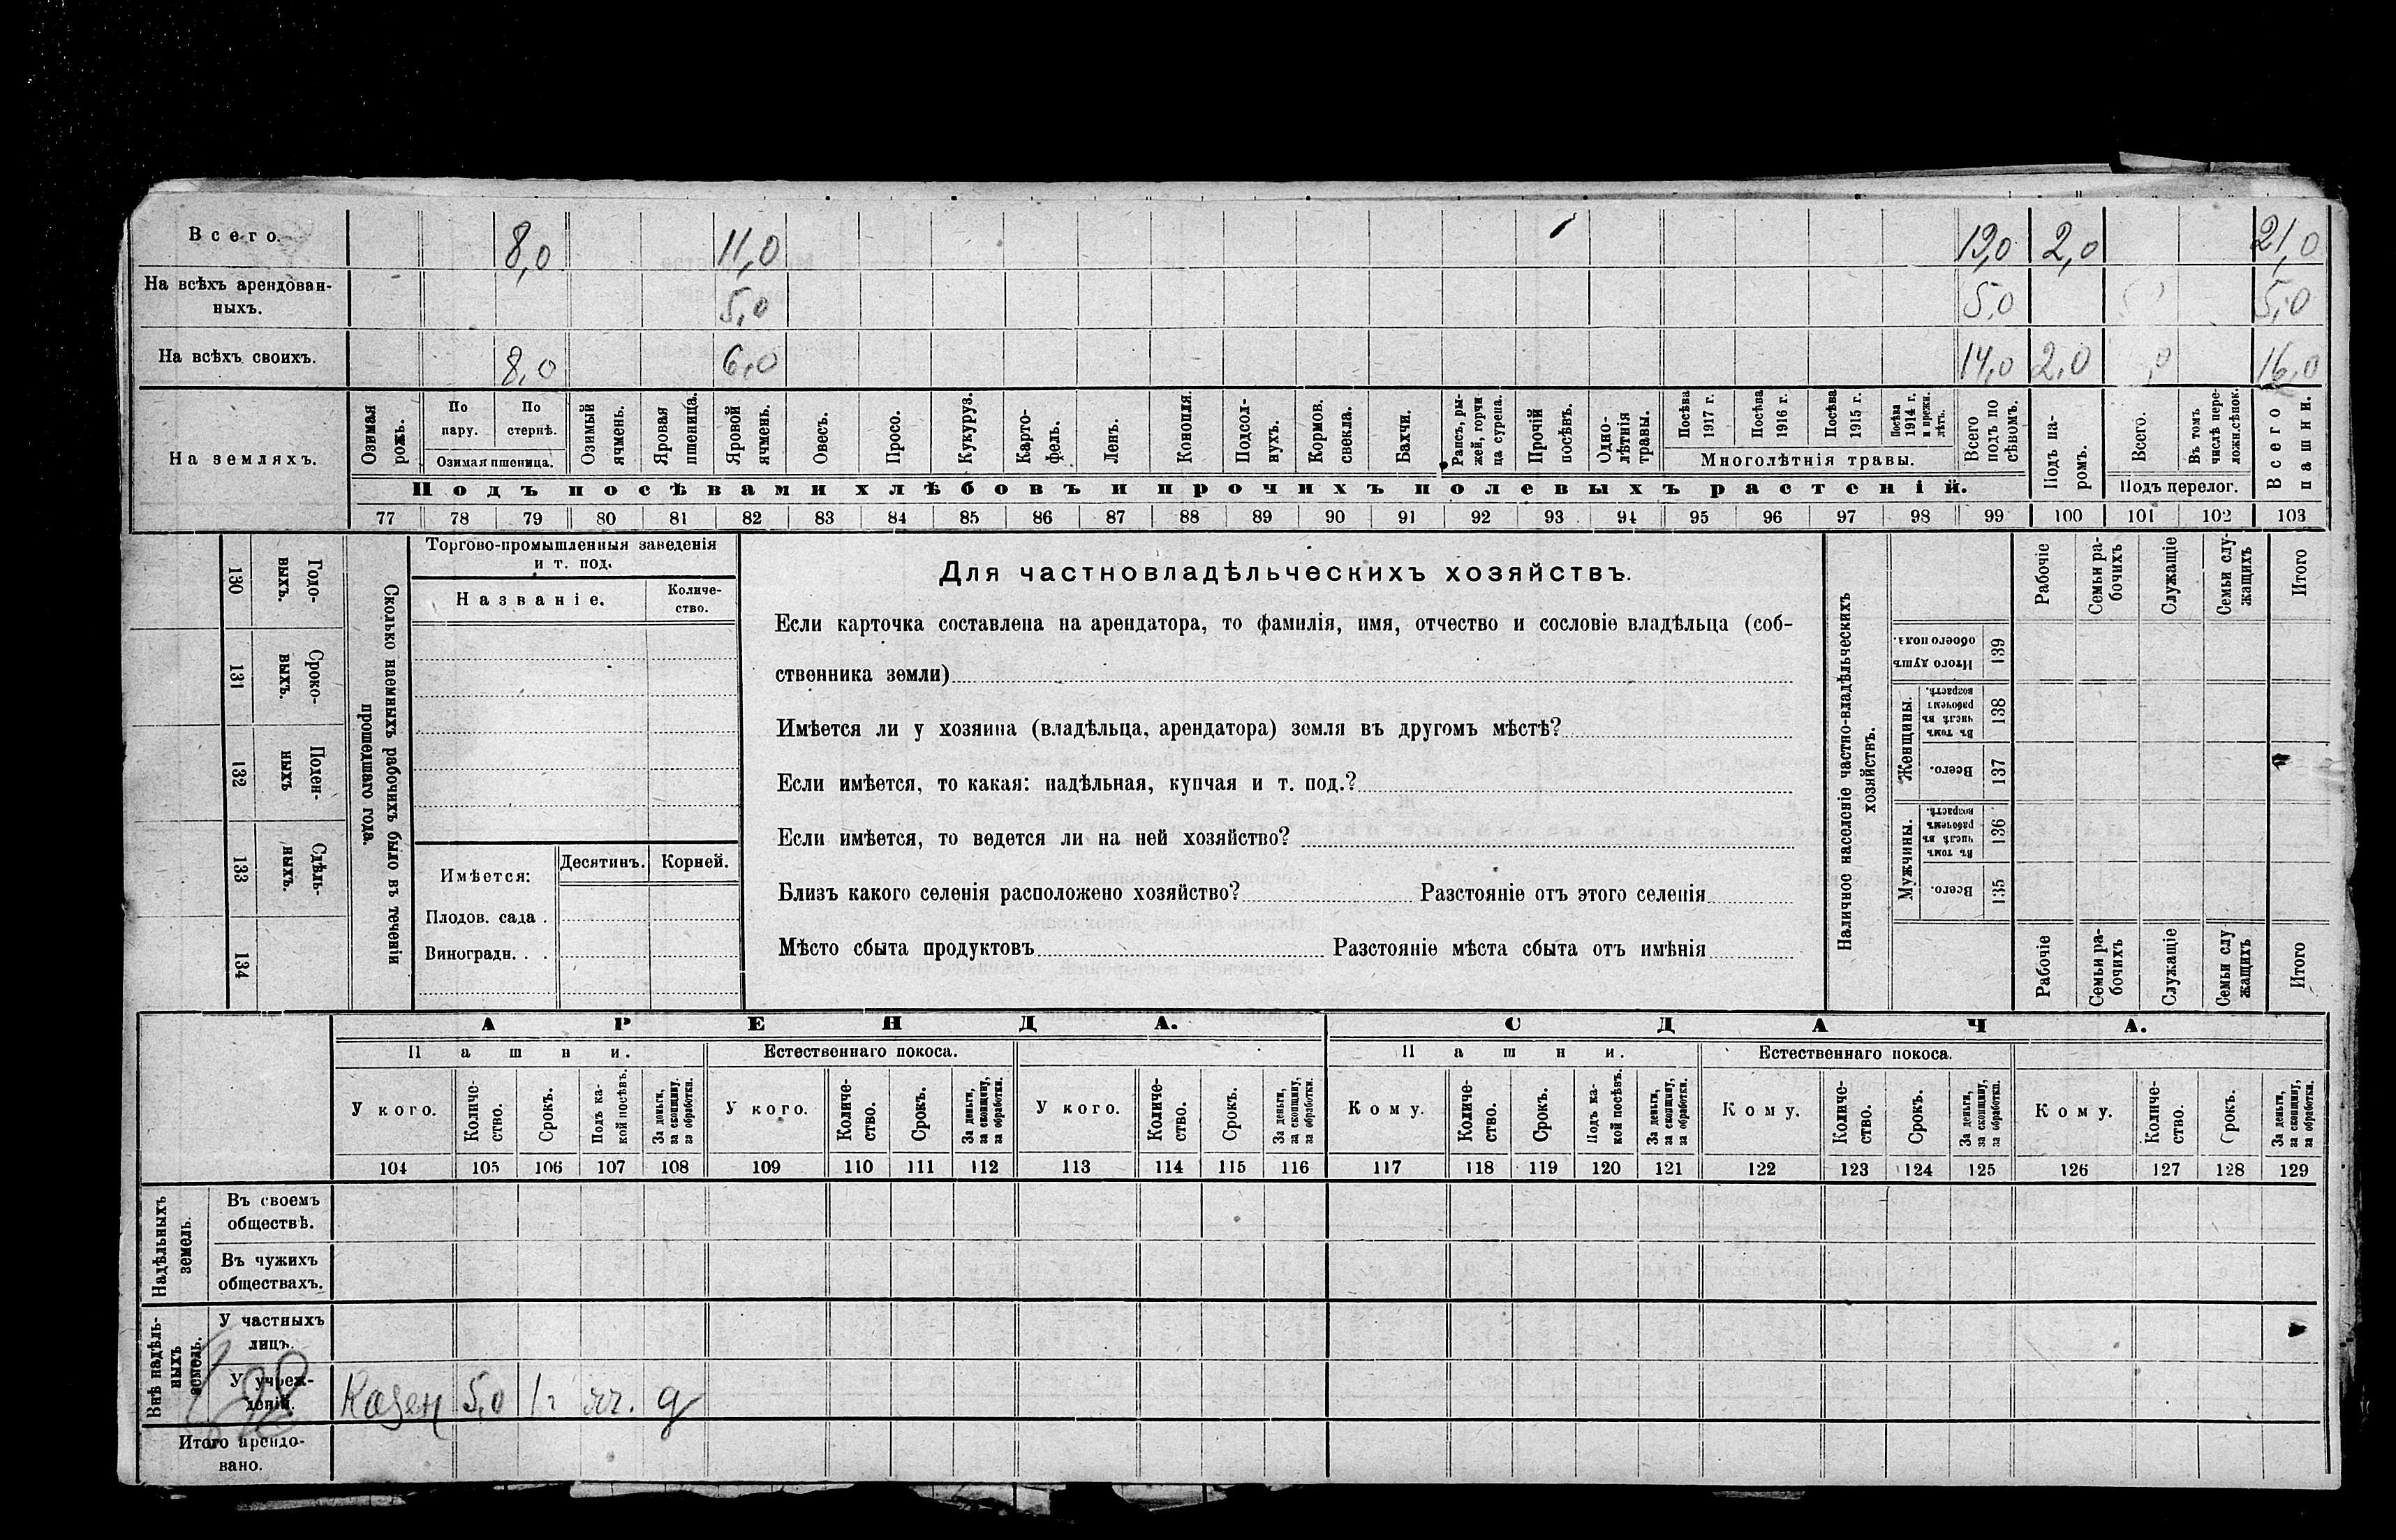 Всего. 8,0 11,0 19,0 2,0 21,0
На всѣхъ арендован-
ныхъ. 5,0 5,0 5,0
На всѣхъ своихъ. 8,0 6,0 14,0 2,0 16,0
На земляхъ.
Озимая рожь.
По пару.
По стернѣ.
Озимая пшеница.
Озимый ячмень.
Яровая пшеница.
Яровой ячмень.
Овесъ.
Просо.
Кукуруз.
Карто-
фель.
Ленъ.
Конопля.
Подсол-
нухъ.
Кормов.
свекла.
Бахчи.
Рапсъ, ры-
жей, горчи
ца сурепа.
Прочій
посѣвъ.
Одно-
лѣтнія
травы.
Посѣва
1917 г.
Посѣва
1916 г.
Посѣва
1915 г.
Посѣва
1914 г.
и прежн.
лѣтъ.
Многолѣтнія травы.
Всего
подъ по
сѣвомъ.
Подъ па-
ромъ.
Всего.
Въ томъ
числѣ пере-
ложн.сѣнок.
Подъ перелог.
Всего
пашни.
Подъ посѣвами хлѣбовъ и прочихъ полевыхъ растеній.
77 78 79 80 81 82 83 84 85 86 87 88 89 90 91 92 93 94 95 96 97 98 99 100 101 102 103
130 Годо-
выхъ.
131 Сроко-
выхъ.
132 Поден-
ныхъ
133 Сдѣль-
ныхъ.
134
Сколько наемныхъ рабочихъ было въ теченіи
прошедшаго года.
Торгово-промышленныя заведенія
и т. под.
Названіе.
Количе-
ство.
Имѣется:
Десятинъ. Корней.
Плодов. сада .
Виноградн. . .
Для частновладѣльческихъ хозяйствъ.
Если карточка составлена на арендатора, то фамилія, имя, отчество и сословіе владѣльца (соб-
ственника земли)
Имѣется ли у хозяина (владѣльца, арендатора) земля въ другомъ мѣстѣ?
Если имѣется, то какая: надѣльная, купчая и т. под.?
Если имѣется, то ведется ли на ней хозяйство?
Близъ какого селенія расположено хозяйство? Разстояніе отъ этого селенія
Мѣсто сбыта продуктовъ Разстояніе мѣста сбыта отъ имѣнія
Наличное населеніе частно-владѣльческихъ
хозяйствъ.
Рабочіе
Семьи ра-
бочихъ
Служащіе
Семьи слу-
жащихъ
Итого
Итого душъ
обоего пола.
139
Женщины.
Въ томъ
числѣ въ
рабочемъ
возрастѣ.
138
Всего.
137
Мужчины.
Въ томъ
числѣ въ
рабочемъ
возрастѣ.
136
Всего.
135
Рабочіе
Семьи ра-
бочихъ
Служащіе
Семьи слу
жащихъ
Итого
АРЕНДА. СДАЧА.
Пашни. Естественнаго покоса. Пашни. Естественнаго покоса.
У кого.
Количе-
ство.
Срокъ.
Подъ ка-
кой посѣвъ.
За деньги,
за скопщину,
за обработки.
У кого.
Количе-
ство.
Срокъ.
За деньги,
за скопщину,
за обработки.
У кого.
Количе-
ство.
Срокъ.
За деньги,
за скопщину,
за обработки.
Кому.
Количе-
ство.
Срокъ.
Подъ ка-
кой посѣвъ.
За деньги,
за скопщину,
за обработки.
Кому.
Количе-
ство.
Срокъ.
За деньги,
за скопщину,
за обработки.
Кому.
Количе-
ство.
Срокъ.
За деньги,
за скопщину,
за обработки.
104 105 106 107 108 109 110 111 112 113 114 115 116 117 118 119 120 121 122 123 124 125 126 127 128 129
Надѣльныхъ
земель.
Въ своемъ
обществѣ.
Въ чужихъ
обществахъ.
Внѣ надѣль-
ныхъ
земель.
У частныхъ
лицъ.
У учреж-
деній. Казен 5,0 1г яч. д
Итого арендо-
вано.